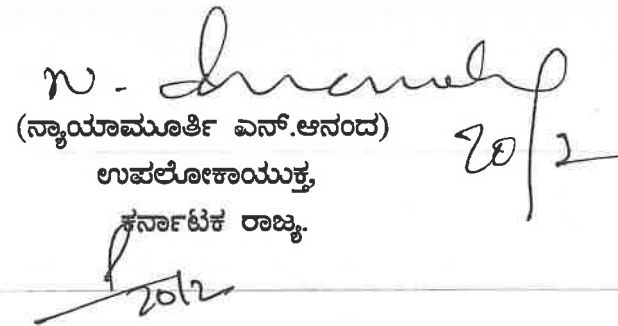 N. Ananda
(ನ್ಯಾಯಾಮೂರ್ತಿ ಎನ್.ಆನಂದ)
20/2
ಉಪಲೋಕಾಯುಕ್ತ,
ಕರ್ನಾಟಕ ರಾಜ್ಯ.
20/2